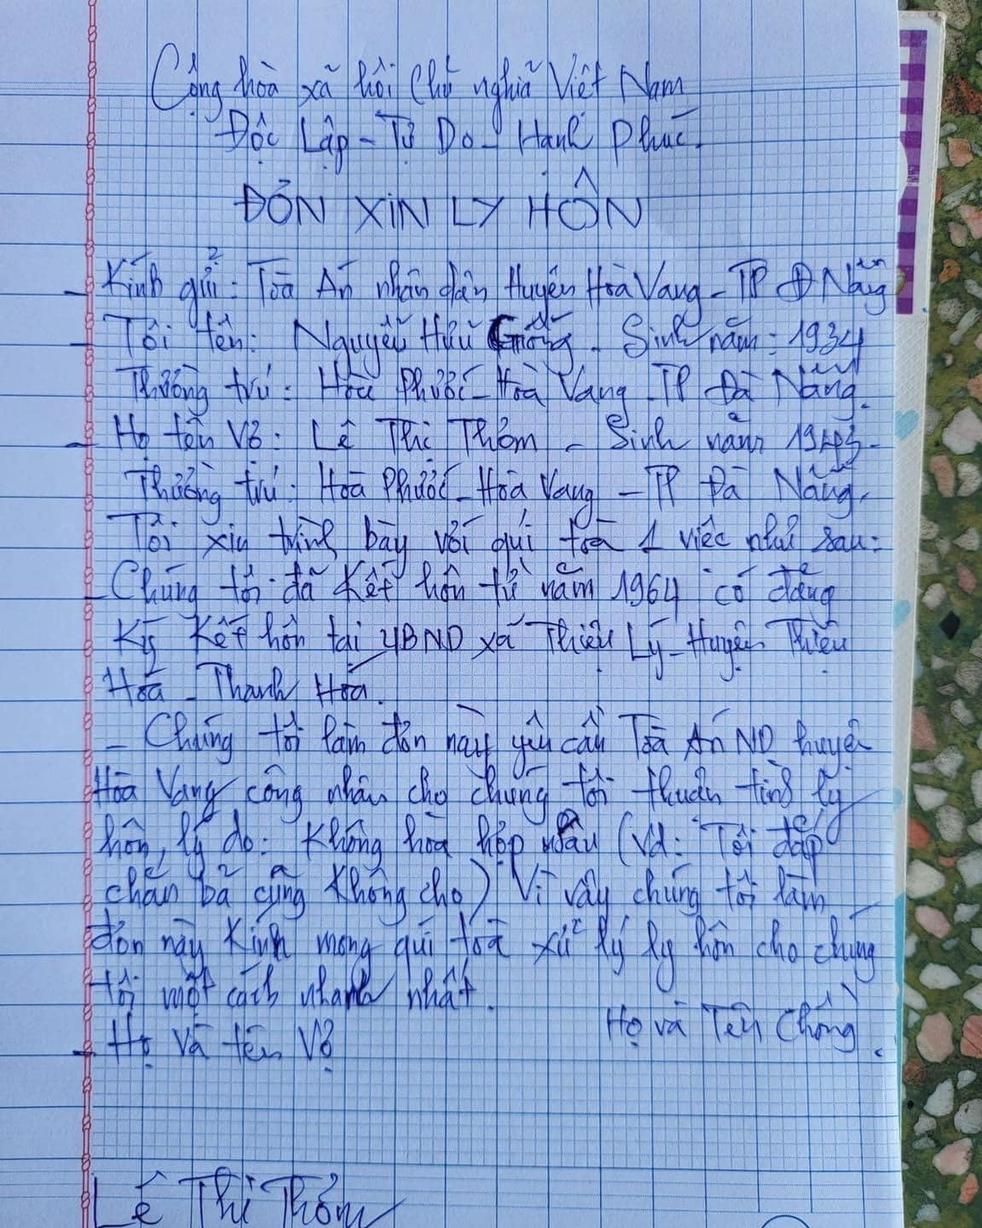 Cộng hòa xã hội Chủ nghĩa Việt Nam
Độc Lập - Tự Do - Hạnh Phúc.
ĐƠN XIN LY HÔN
- Kính gửi: Toà Án nhân dân Huyện Hoà Vang - TP Đ Nẵng
Tôi tên: Nguyễn Hữu Giống - Sinh năm: 1934
Thường trú: Hòa Phước - Hoà Vang - TP Đà Nẵng.
- Họ tên Vợ: Lê Thị Thơm - Sinh năm 1943 -
Thường trú: Hoà Phước - Hoà Vang - TP Đà Nẵng.
Tôi xin trình bày với quí toà 1 việc như sau:
- Chúng tôi đã kết hôn từ năm 1964 có đăng
Ký Kết hôn tại UBND xã Thiệu Lý - Huyện Thiệu
Hoá - Thanh Hóa.
- Chúng tôi làm đơn này yêu cầu Toà Án ND huyện
Hòa Vang công nhận cho chúng tôi thuận tình ly
hôn, lý do: Không hòa hợp nhau (Vd: Tôi đắp
chăn bả cũng không cho) Vì vậy chúng tôi làm
đơn này Kính mong quí toà xử lý ly hôn cho chúng
tôi một cách nhanh nhất.
Họ và Tên Chồng.
- Họ và tên Vợ
Lê Thị Thơm